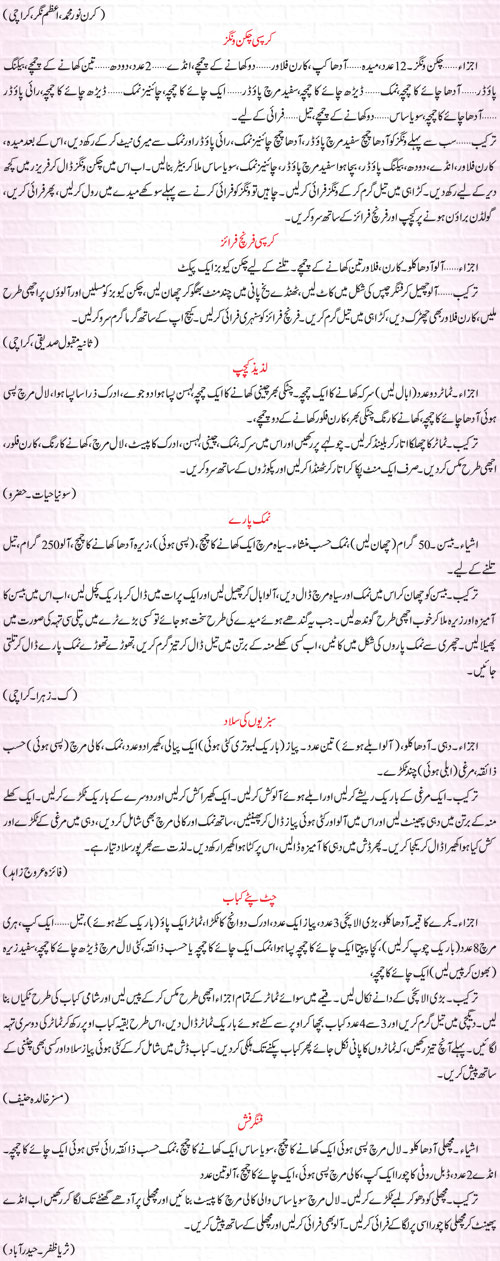 (کرن نور محمد، اعظم نگر، کراچی)
کرسپی چکن ونگز
اجزاء......چکن ونگز۔12عدد، میدہ......آدھا کپ، کارن فلاور......دو کھانے کے چمچے، انڈے......2عدد، دودھ......تین کھانے کے چمچے، بیکنگ
پاؤڈر......آدھا چائے کا چمچہ، نمک......ڈیڑھ چائے کا چمچہ، سفید مرچ پاؤڈر......ایک چائے کا چمچہ، چائنیز نمک......ڈیڑھ چائے کا چمچہ، رائی پاؤڈر
......آدھا چائے کا چمچہ، سویا ساس......دو کھانے کے چمچے، تیل......فرائی کے لیے۔
ترکیب......سب سے پہلے ونگز کو آدھا چمچ سفید مرچ پاؤڈر، آدھا چمچ چائنیز نمک، رائی پاؤڈر اور نمک سے میری نیٹ کر کے رکھ دیں، اس کے بعد میدہ،
کارن فلاور، انڈے، دودھ، بیکنگ پاؤڈر، بچا ہوا سفید مرچ پاؤڈر، چائنیز نمک، سویا ساس ملا کر بیٹر بنالیں۔ اب اس میں چکن ونگز ڈال کر فریزر میں کچھ
دیر کے لیے رکھ دیں۔ کڑاہی میں تیل گرم کر کے ونگز فرائی کرلیں۔ چاہیں تو ونگز کو فرائی کرنے سے پہلے سوکھے میدے میں رول کرلیں، پھر فرائی کریں،
گولڈن براؤن ہونے پر کیچپ اور فرنچ فرائز کے ساتھ سرو کریں۔
کرسپی فرنچ فرائز
اجزاء......آلو آدھا کلو۔ کارن، فلاور تین کھانے کے چمچے۔ تلنے کے لیے چکن کیوبز ایک پیکٹ
ترکیب......آلو چھیل کر فنگر چپس کی شکل میں کاٹ لیں، ٹھنڈے یخ پانی میں چند منٹ بھگو کر چھان لیں، چکن کیوبز کو مسلیں اور آلوؤں پر اچھی طرح
ملیں، کارن فلاور بھی چھڑک دیں، کڑاہی میں تیل گرم کریں۔ فرنچ فرائز کو سنہری فرائی کرلیں۔ کیچ اپ کے ساتھ گرما گرم سرو کرلیں۔
(ثانیہ مقبول صدیقی، کراچی)
لذیذ کیچپ
اجزاء۔ ٹماٹر دو عدد (ابال لیں) سرکہ کھانے کا ایک چمچہ۔ چٹکی بھر چینی کھانے کا ایک چمچہ، لہسن پسا ہوا دو جوے، ادرک ذرا سا پسا ہوا، لال مرچ پسی
ہوئی آدھا چائے کا چمچہ، کھانے کا رنگ چٹکی بھر، کارن فلور کھانے کے دو چمچے،۔
ترکیب۔ ٹماٹر کا چھلکا اتار کر بلینڈ کرلیں۔ چولہے پر رکھیں اور اس میں سرکہ نمک، چینی لہسن، ادرک کا پیسٹ، لال مرچ، کھانے کا رنگ، کارن فلور،
اچھی طرح مکس کر دیں۔ صرف ایک منٹ پکا کر اتار کر ٹھنڈا کرلیں اور پکوڑوں کے ساتھ سرو کریں۔
(سونیا حیات۔ حضرو)
نمک پارے
اشیاء۔ بیسن۔50 گرام (چھان لیں) نمک حسب منشاء۔ سیاہ مرچ ایک کھانے کا چمچ، (پسی ہوئی)، زیرہ آدھا کھانے کا چمچ، آلو250 گرام، تیل
تلنے کے لیے۔
ترکیب۔ بیسن کو چھان کر اس میں نمک اور سیاہ مرچ ڈال دیں، آلو ابال کر چھیل لیں اور ایک پرات میں ڈال کر باریک کچل لیں، اب اس میں بیسن کا
آمیزہ اور زیرہ ملا کر خوب اچھی طرح گوندھ لیں۔ جب یہ گندھے ہوئے میدے کی طرح سخت ہو جائے تو کسی بڑے ٹرے میں پتلی سی تہہ کی صورت میں
پھیلا لیں۔ چھری سے نمک پاروں کی شکل میں کاٹیں، اب کسی کھلے منہ کے برتن میں تیل ڈال کر تیز گرم کریں، تھوڑے تھوڑے نمک پارے ڈال کر تلتی
جائیں۔
(ک۔ زہرا۔ کراچی)
سبزیوں کی سلاد
اجزاء۔ دہی۔ آدھا کلو، (آلو ابلے ہوئے) تین عدد۔ پیاز (باریک لمبوتری کٹی ہوئی) ایک پیالی، کھیرا دو عدد، نمک، کالی مرچ (پسی ہوئی) حسب
ذائقہ، مرغی (ابلی ہوئی) چند ٹکڑے۔
ترکیب۔ ایک مرغی کے باریک ریشے کرلیں اور ابلے ہوئے آلو کش کرلیں۔ ایک کھیرا کش کرلیں اور دوسرے کے باریک ٹکڑے کرلیں۔ ایک کھلے
منہ کے برتن میں دہی پھینٹ لیں اور اس میں آلو اور کٹی ہوئی پیاز ڈال کر پھینٹیں، ساتھ نمک اور کالی مرچ بھی شامل کر دیں، دہی میں مرغی کے ٹکڑے اور
ایک کش کیا ہوا کھیرا ڈال کر یکجا کریں۔ پھر ڈش میں دہی کا آمیزہ ڈالیں، اس پر کٹا ہوا کھیرا رکھ دیں۔ لذت سے بھرپور سلاد تیار ہے۔
(فائزہ عروج زاہد)
چٹ پٹے کباب
اجزاء۔ بکرے کا قیمہ آدھا کلو، بڑی الائچی 3عدد، پیاز ایک عدد، ادرک دو انچ کا ٹکڑا، ٹماٹر ایک پاؤ (باریک کٹے ہوئے)، تیل......ایک کپ، ہری
مرچ 8عدد (باریک چوپ کرلیں)، کچا پپیتا ایک چائے کا چمچہ پسا ہوا، نمک ایک چائے کا چمچہ یا حسب ذائقہ، کٹی لال مرچ ڈیڑھ چائے کا چمچہ، سفید زیرہ
(بھون کر پیس لیں) ایک چائے کا چمچہ،
ترکیب۔ بڑی الائچی کے دانے نکال لیں۔ قیمے میں سوائے ٹماٹر کے تمام اجزاء اچھی طرح مکس کر کے پیس لیں اور شامی کباب کی طرح ٹکیاں بنا
لیں۔ دیگچی میں تیل گرم کریں اور 3 سے 4 عدد کباب بچھا کر اوپر سے کٹے ہوئے باریک ٹماٹر ڈال دیں، اس طرح بقیہ کباب اوپر رکھ کر ٹماٹر کی دوسری تہہ
لگائیں۔ پہلے آنچ تیز رکھیں، کہ ٹماٹروں کا پانی نکل جائے پھر کباب پکنے تک ہلکی کر دیں۔ کباب ڈش میں شامل کر کے کٹی ہوئی پیاز سلاد اور کسی بھی چٹنی کے
ساتھ پیش کریں۔
(مسز خالدہ حنیف)
فنگر فش
اشیاء۔ مچھلی آدھا کلو۔ لال مرچ پسی ہوئی ایک کھانے کا چمچ، سویا ساس ایک کھانے کا چمچ، نمک حسب ذائقہ رائی پسی ہوئی ایک چائے کا چمچہ۔
انڈے2عدد، ڈبل روٹی کا چورا ایک کپ، کالی مرچ پسی ہوئی، ایک چائے کا چمچ، آلو تین عدد
ترکیب۔ مچھلی کو دھو کر لمبے ٹکڑے کرلیں۔ لال مرچ سویا ساس والی کالی مرچ کا پیسٹ بنائیں اور مچھلی پر آدھے گھنٹے تک لگا کر رکھیں اب انڈے
پھینٹ کر مچھلی کو چورا اسی پر لگا کے فرائی کرلیں۔ آلو بھی فرائی کرلیں اور مچھلی کے ساتھ پیش کریں۔
(ثریا ظفر۔ حیدر آباد)